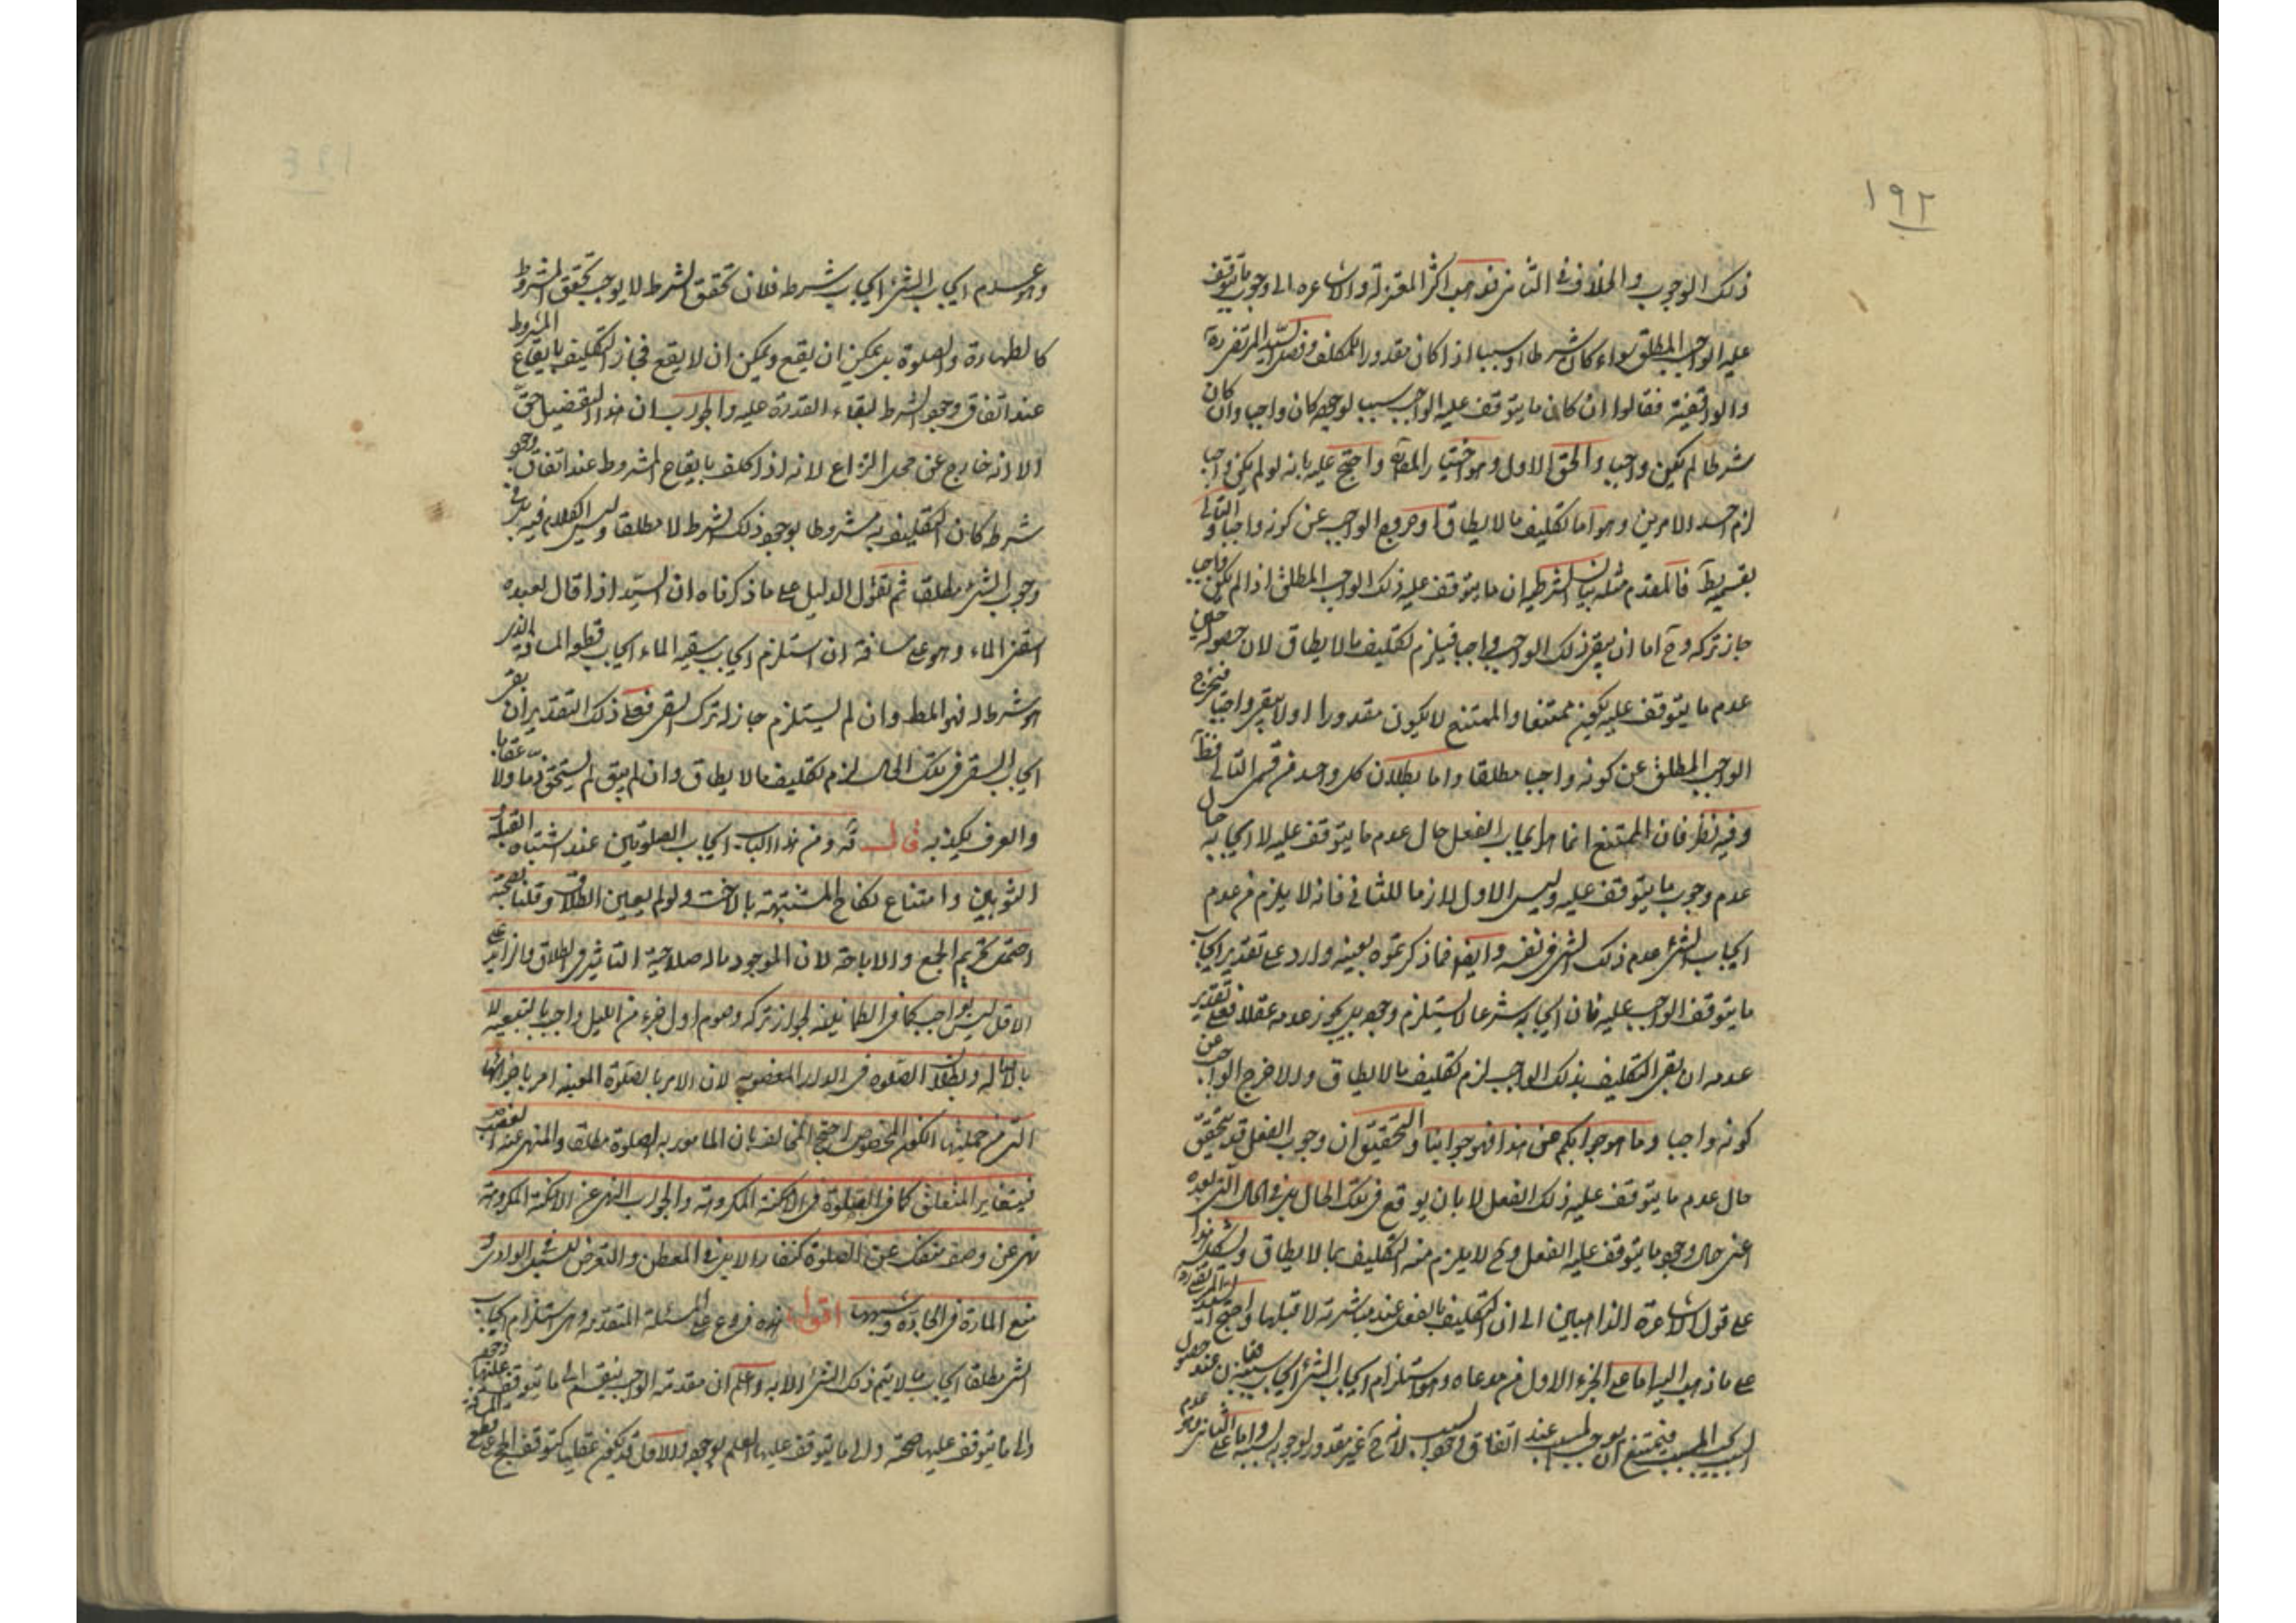 ١٩٢
ذلك الوجوب والخلاف في الثاني فذهب اكثر المعتزلة والاشاعره الى وجوب ما يتوقف
عليه الواجب المطلق سواء كان شرطا او سببا اذا كان مقدورا للمكلف وفصل السيد المرتضى ره
والواقفية فقالوا ان كان ما يتوقف عليه الواجب سبب لوجوبه كان واجبا وان كان
شرطا لم يكن واجبا والحق الاول وهو اختيار المصنف واحتج عليه بانه لو لم يكن واجبا
لزم احد الامرين وهو اما تكليف ما لا يطاق او خروج الواجب عن كونه واجبا والتالي
بقسميه بط فالمقدم مثله بيان الشرطيه ان ما يتوقف عليه ذلك الواجب المطلق اذا لم يكن واجبا
جاز تركه وح اما ان يبقى ذلك الواجب واجبا فيلزم تكليف ما لا يطاق لان حصوله حين
عدم ما يتوقف عليه يكون ممتنعا والممتنع لا يكون مقدورا او لا يبقى واجبا فيخرج
الواجب المطلق عن كونه واجبا مطلقا واما بطلان كل واحد من قسمي التالي فظ
وفيه نظر فان الممتنع انما هو ايجاب الفعل حال عدم ما يتوقف عليه لا ايجابه حال
عدم وجوب ما يتوقف عليه وليس الاول لازما للثاني فانه لا يلزم من عدم
ايجاب الشئ عدم ذلك الشئ في نفسه وايضا فما ذكرتموه بعينه وارد على تقدير ايجاب
ما يتوقف الواجب عليه فان ايجابه شرعا لا يستلزم وجوده بل يجوز عدمه عقلا فعلى تقدير
عدمه ان بقى التكليف بذلك الواجب لزم تكليف ما لا يطاق والا خرج الواجب عن
كونه واجبا وما هو جوابكم عن هذا فهو جوابنا والتحقيق ان وجوب الفعل قد يتحقق
حال عدم ما يتوقف عليه ذلك الفعل لا بان يوقع في تلك الحال بل في الحال التي بعده
اعني حال وجود ما يتوقف عليه الفعل وح لا يلزم منه التكليف بما لا يطاق ويشكل هذا
على قول الاشاعرة الذاهبين الى ان التكليف بالفعل عند مباشرته لا قبلها واحتج السيد المرتضى ره
على ما ذهب اليه اما على الجزء الاول من مدعاه وهو استلزام ايجاب الشئ ايجاب سببه فبان عند حصول
السبب يجب المسبب فيمتنع ان يوجب المسبب عند اتفاق وجود السبب لانه ح غير مقدور لوجوبه بسببه واما على الثاني وهو عدم
وهو عدم ايجاب الشئ ايجاب شرطه فلان تحقق الشرط لا يوجب تحقق المشروط
كالطهارة والصلوة بل يمكن ان يقع ويمكن ان لا يقع فجاز التكليف بايقاع المشروط
عند اتفاق وجود الشرط لبقاء القدرة عليه والجواب ان هذا التفصيل حق
الا انه خارج عن محل النزاع لانه اذا كلف بايقاع المشروط عند اتفاق وجود
شرط كان التكليف به مشروطا بوجود ذلك الشرط لا مطلقا وليس الكلام فيه بل في
وجوب الشئ مطلقا ثم نقول الدليل على ما ذكرناه ان السيد اذا قال لعبده
اسقني الماء وهو على مسافة ان استلزم ايجاب سقيه الماء ايجاب قطع المسافة الذي
هو شرط له فهو المط وان لم يستلزم جاز له ترك السقي فعلى ذلك التقدير ان بقى
ايجاب السقي في تلك الحال لزم تكليف ما لا يطاق وان لم يبق لم يستحق ذما ولا عقابا
والعرف يكذبه قال قه ومن هذا الباب ايجاب الصلوتين عند اشتباه القبلة
الثوبين وامتناع نكاح المشتبهة بالاخت ولو لم يعين الطلاق وقلنا بصحته
احتمل تحريم الجمع والاباحة لان الموجود ماله صلاحية التاثير في الطلاق وما زاد على
الاقل ليس بواجب كما في الطمانينة لجواز تركه وصوم اول جزء من الليل واجب بالتبعيه لا
بالاصاله وبطلان الصلوة في الدار المغصوبه لان الامر بالصلوة المعينه امر باجزائها
التي من جملتها الكون المخصوص احتج المخالف بان المامور به الصلوة مطلقا والمنهي عنه الغصب
فيتغاير المتعلق كما في الصلوة في الامكنة المكروهة والجواب النهي عن الامكنة المكروهة
نهي عن وصف منفك عن الصلوة كنفار الابل في المعطن والتعرض للسيل في الوادي و
منع المارة في الجادة وشبهها اقول هذه فروع على المسئلة المتقدمة وهي استلزام ايجاب
الشئ مطلقا ايجاب ما لا يتم ذلك الشئ الا به واعلم ان مقدمة الواجب ينقسم الى ما يتوقف عليها وجوده
والى ما يتوقف عليها صحته والى ما يتوقف عليها العلم بوجوده والاول قد يكون عقليا كتوقف الحج على قطع المسافة